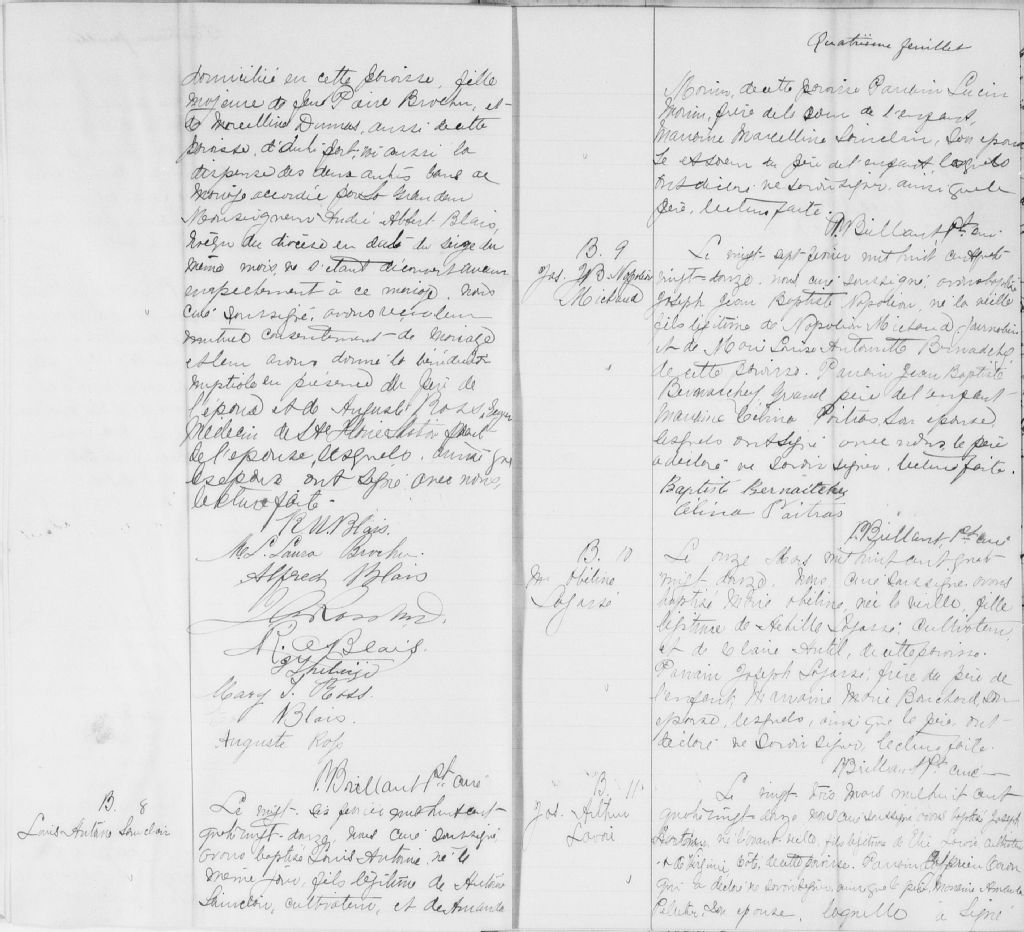 domiciliée en cette paroisse, fille
majeure de feu Pierre Brochu, et
de Marcelline Dumas, aussi de cette
paroisse, d'autre part, vu aussi la
dispense des deux autres bans de
mariage accordée par Sa Grandeur
Monseigneur André Albert Blais,
évêque du diocèse en date du seize du
même mois, ne s'étant découvert aucun
empêchement à ce mariage, nous
curé soussigné, avons reçu leur
mutuel consentement de mariage
et leur avons donné la bénédiction
nuptiale en présence du père de
l'époux et de Auguste Ross,
Médecin de Ste Flavie Station
de l'épouse, lesquels, ainsi que
les époux ont signé avec nous,
lecture faite.
Blais.
M. L. Laura Brochu.
Alfred Blais
Ross
Blais.
Mary J. Ross.
Blais.
Auguste Ross
P. Brillant Ptr curé
B. 8
Louis Antoine Sauclair
Le vingt-six février mil huit cent
quatre vingt-douze, nous curé soussigné
avons baptisé Louis Antoine, né le
même jour, fils légitime de Antoine
Sauclair, cultivateur, et de Amanda
Quatrième feuillet
Morin, de cette paroisse Parrain Lucien
Morin, frère de la de l'enfant,
Marraine Marcelline Sauclair, son épou
se et soeur du père de l'enfant lesquels
ont déclaré ne savoir signer, ainsi que le
père, lecture faite.
P. Brillant Ptr curé
B. 9
Jos. J.B. Napoléon
Michaud
Le vingt-sept février mil huit cent quatre
vingt-douze, nous curé soussigné, avons baptisé
Joseph Jean Baptiste Napoléon, né la veille
fils légitime de Napoléon Michaud, journalier
et de Marie Louise Antoinette Bernatchez
de cette paroisse. Parrain Jean Baptiste
Bernatchez, grand père de l'enfant
Marraine Célina Poitras, son épouse,
lesquels ont signé avec nous, le père
a déclaré ne savoir signer, lecture faite.
Baptiste Bernaitchez
Célina Poitras
P. Brillant Ptr curé
B. 10
M. Obéline
Lagassé
Le onze Mars mil huit cent quatre
vingt-douze, Nous, curé soussigné, avons
baptisé Marie Obéline, née la veille, fille
légitime de Achille Lagassé, cultivateur,
et de Claire Autil, de cette paroisse.
Parrain Joseph Lagassé, frère du père de
l'enfant, Marraine, Marie Bouchard, son
épouse, lesquels, ainsi que le père, ont
déclaré ne savoir signer, lecture faite.
P. Brillant Ptr curé
B. 11
Jos. Arthur
Lavoie
Le vingt trois Mars mil huit cent
quatre vingt-douze nous curé soussigné avons baptisé Joseph
Arthur, né l'avant veille, fils légitime de Elie Lavoie cultivateur
et de Virginie Coté, de cette paroisse. Parrain Cyprien Caron
qui a déclaré ne savoir signer ainsi que le père, Marraine Amanda
Pelletier, son épouse, laquelle a signé